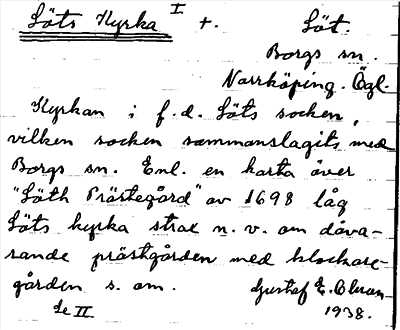 Löts Kyrka I +. Löt.
Borgs sn.
Norrköping. Ögl.
Kyrkan i f.d. Löts socken,
vilken socken sammanslagits med
Borgs sn. Enl. en karta över
"Löth Prästegård" av 1698 låg
Löts kyrka strax n.v. om dåva-
rande prästgården med klockare-
gården s. om. Gustaf E.
Se II 1938.